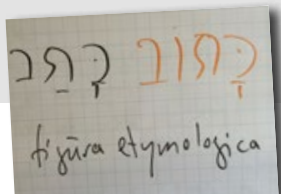 כָּתוב כָּתַב
figūra etymologica